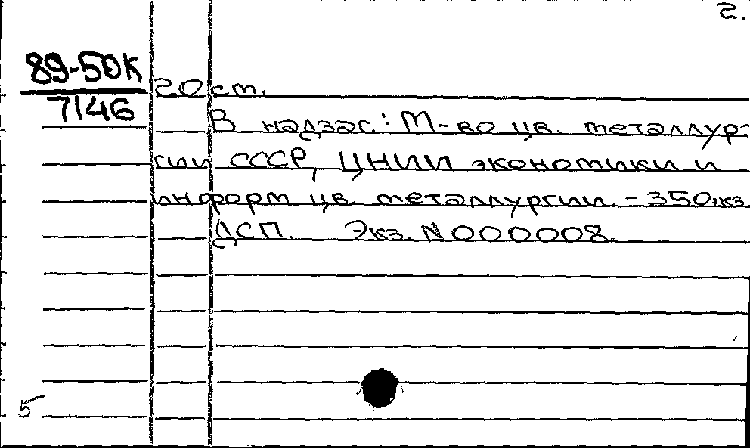 2.
89-50К
7146
20 ст.
В надзаг.: М-во цв. металлур-
гии СССР, ЦНИИ экономики и
информ. цв. металлургии. - 350 экз.
ДСП. Экз. N000008.
5